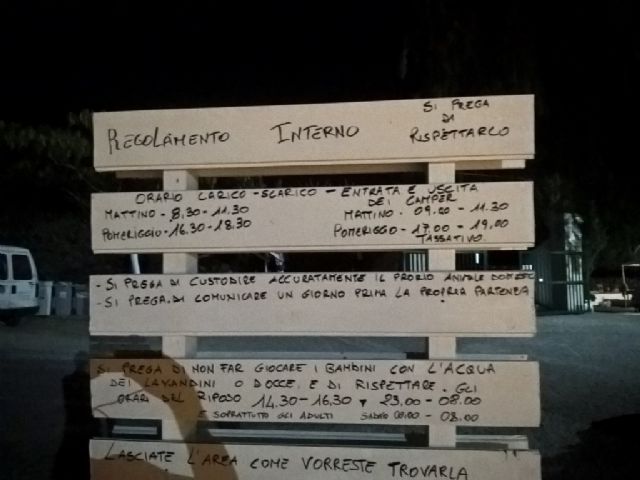 REGOLAMENTO INTERNO SI PREGA DI RISPETTARLO
ORARIO CARICO - SCARICO - ENTRATA E USCITA DEI CAMPER
MATTINO - 8,30 - 11.30 MATTINO - 09.00 - 11.30
POMERIGGIO - 16.30 - 18.30 POMERIGGIO - 17.00 - 19.00
TASSATIVO
- SI PREGA DI CUSTODIRE ACCURATAMENTE IL PROPIO ANIMALE
- SI PREGA DI COMUNICARE UN GIORNO PRIMA LA PROPRIA PARTENZA
SI PREGA DI NON FAR GIOCARE I BAMBINI CON L'ACQUA
DEI LAVANDINI O DOCCE. E DI RISPETTARE. GLI
ORARI DEL RIPOSO 14.30 - 16.30 23.00 - 08.00
E SOPRATTUTTO GLI ADULTI - 08.00
LASCIATE L'AREA COME VORRESTE TROVARLA